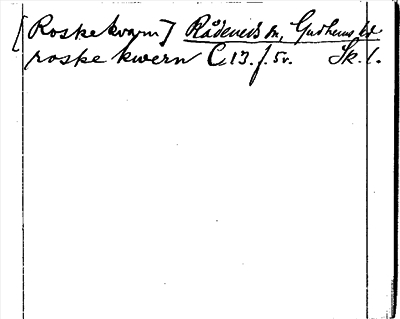 [Roskekvarn] Rådeneds sn, Gudhems hd
roske kwern C 13. f. 5v. Sk. 1.